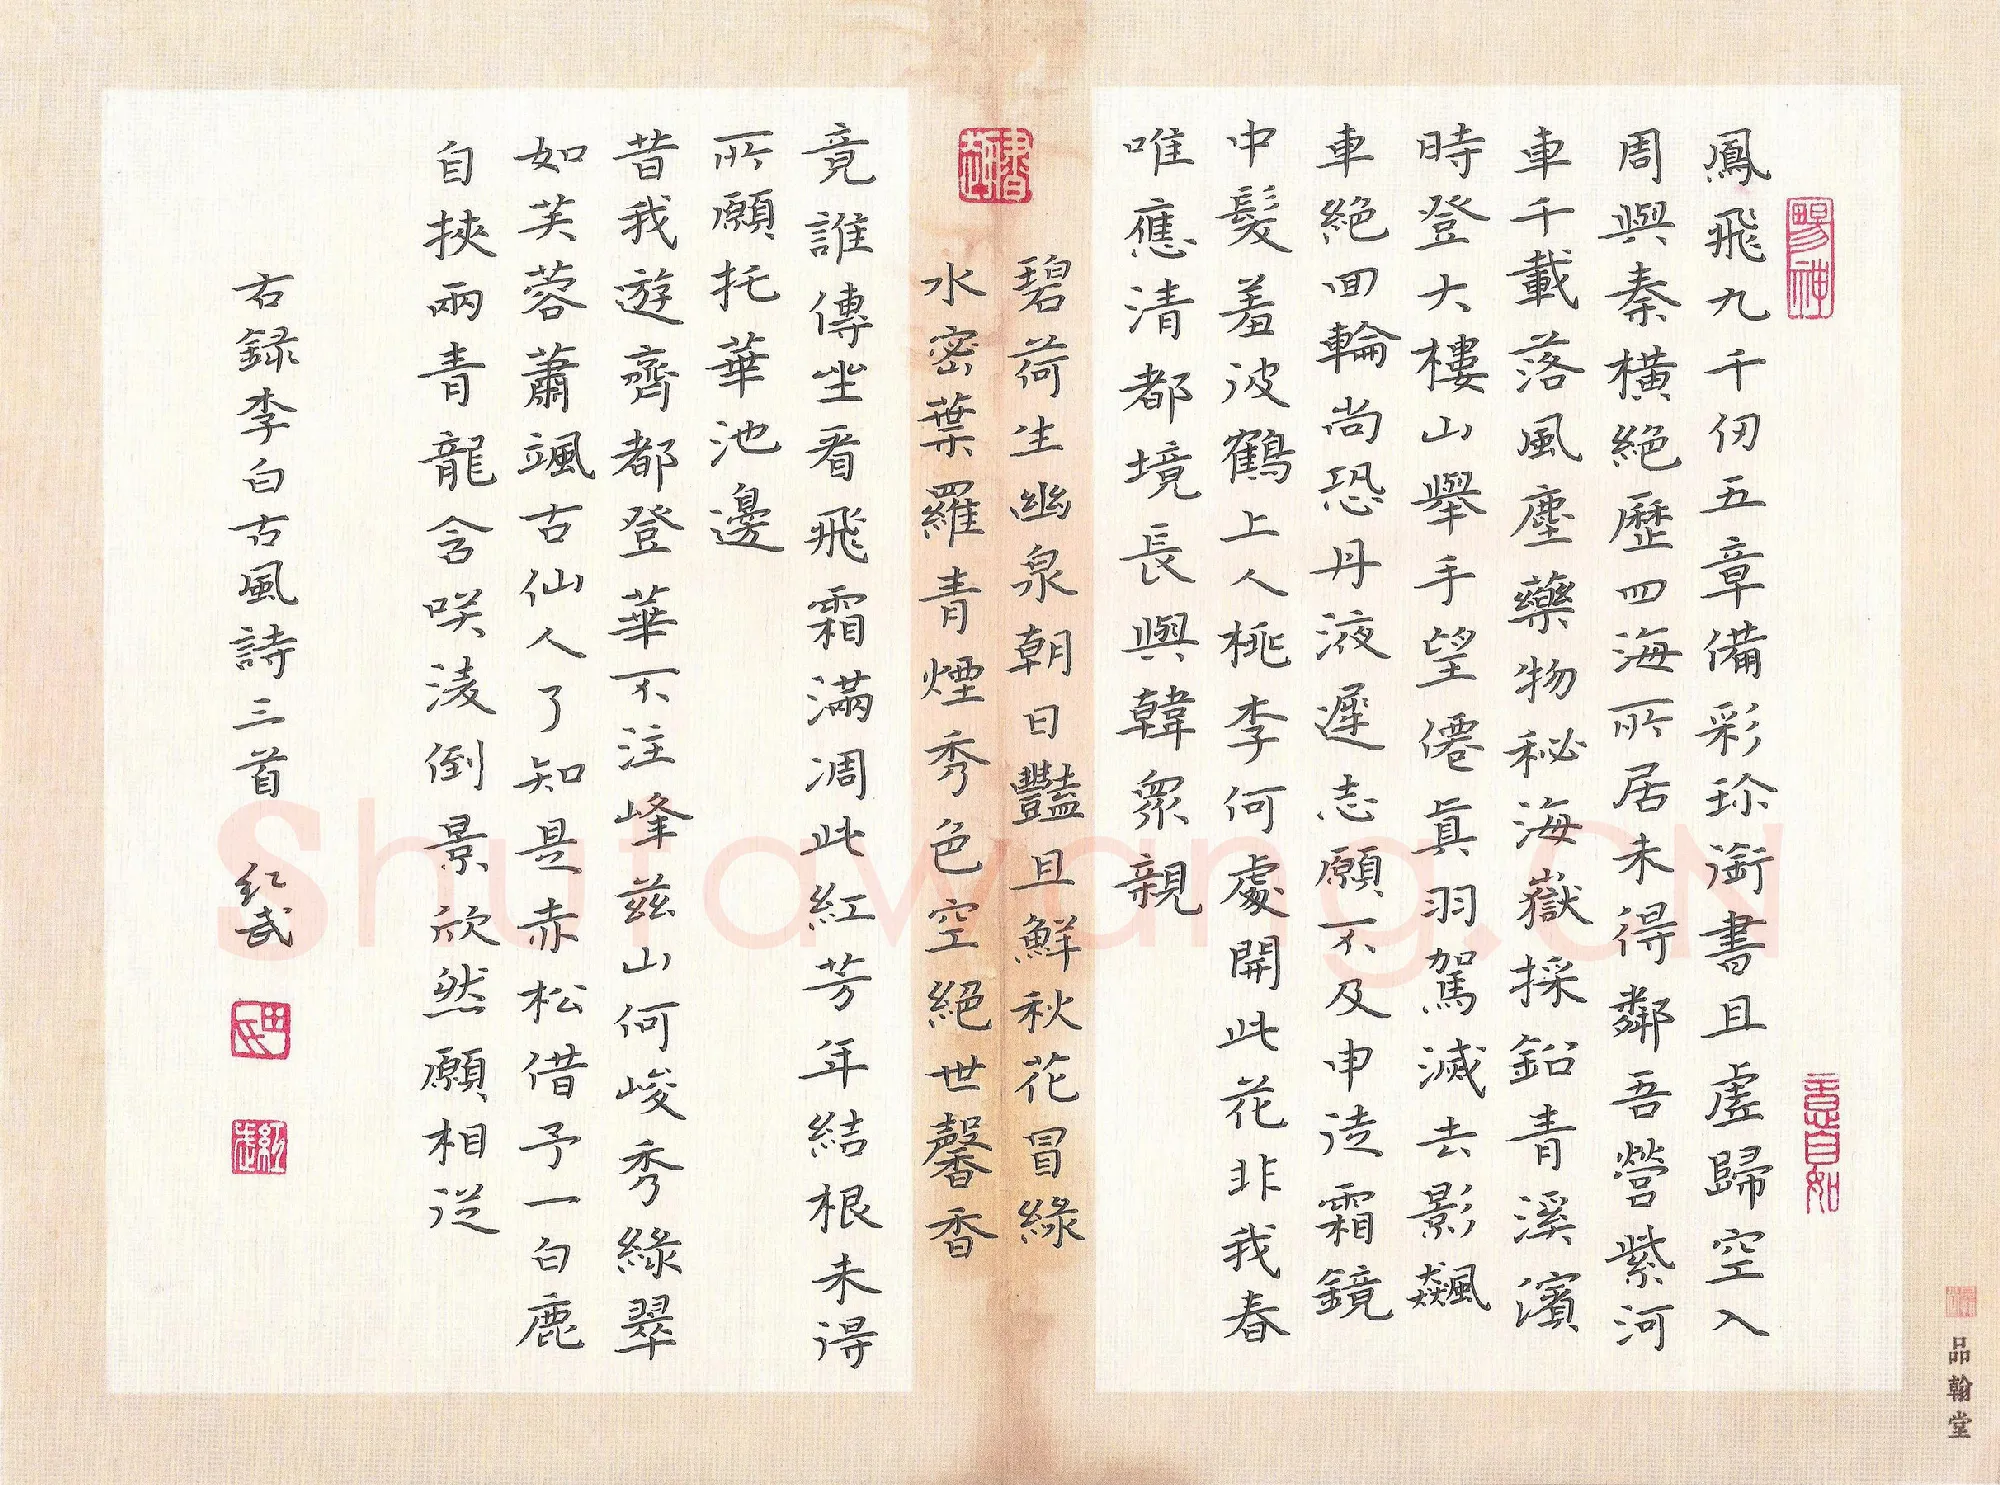 鳳飛九千仞五章備彩珍銜書且虛歸空入
周與秦橫絕歷四海所居未得鄰吾營紫河
車千載落風塵藥物秘海嶽採鉛青溪濱
時登大樓山舉手望僊真羽駕滅去影飆
車絕回輪尚恐丹液遲志願不及申徒霜鏡
中髮羞彼鶴上人桃李何處開此花非我春
唯應清都境長與韓眾親
碧荷生幽泉朝日豔且鮮秋花冒綠
水密葉羅青煙秀色空絕世馨香
竟誰傳坐看飛霜滿凋此紅芳年結根未得
所願托華池邊
昔我遊齊都登華不注峰茲山何峻秀綠翠
如芙蓉蕭颯古仙人了知是赤松借予一白鹿
自挾兩青龍含咲淩倒景欣然願相從
右録李白古風詩三首 紅武
意自如
品翰堂
Shufawang.CN